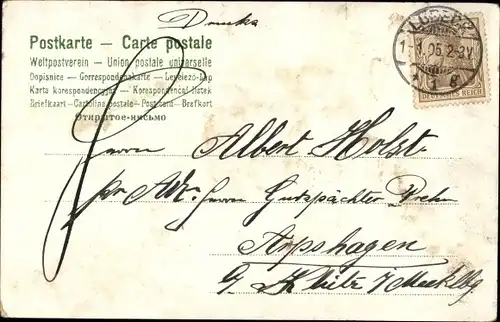 Drucks
Postkarte — Carte postale
Weltpostverein — Union postale universelle
Dopisnice — Correspondenzkarte — Levelező-Lap
Karta korespondencyjna — Korespondencni listek
Briefkaart — Cartolina postale — Post card — Brefkort
Открытое письмо
LÜBECK
1-3.05.2-3V
DEUTSCHES REICH
Herrn Albert Holst.
pr Adr. Herrn Gutspächter
Arpshagen
b/ Klütz i/Mecklbg